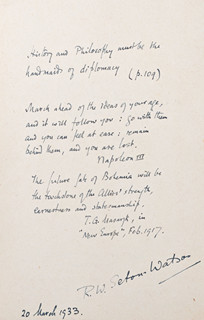 History and Philosophy must be the
handmaids of diplomacy (p.109)
March ahead of the ideas of your age,
and it will follow you: go with them
and you can feel at ease: remain
behind them, and you are lost.
Napoleon III
The future fate of Bohemia will be
the touchstone of the Allies' strength,
earnestness and statesmanship.
T.G. Masaryk, in
"New Europe", Feb. 1917.
R. W. Seton-Watson
20 March 1933.